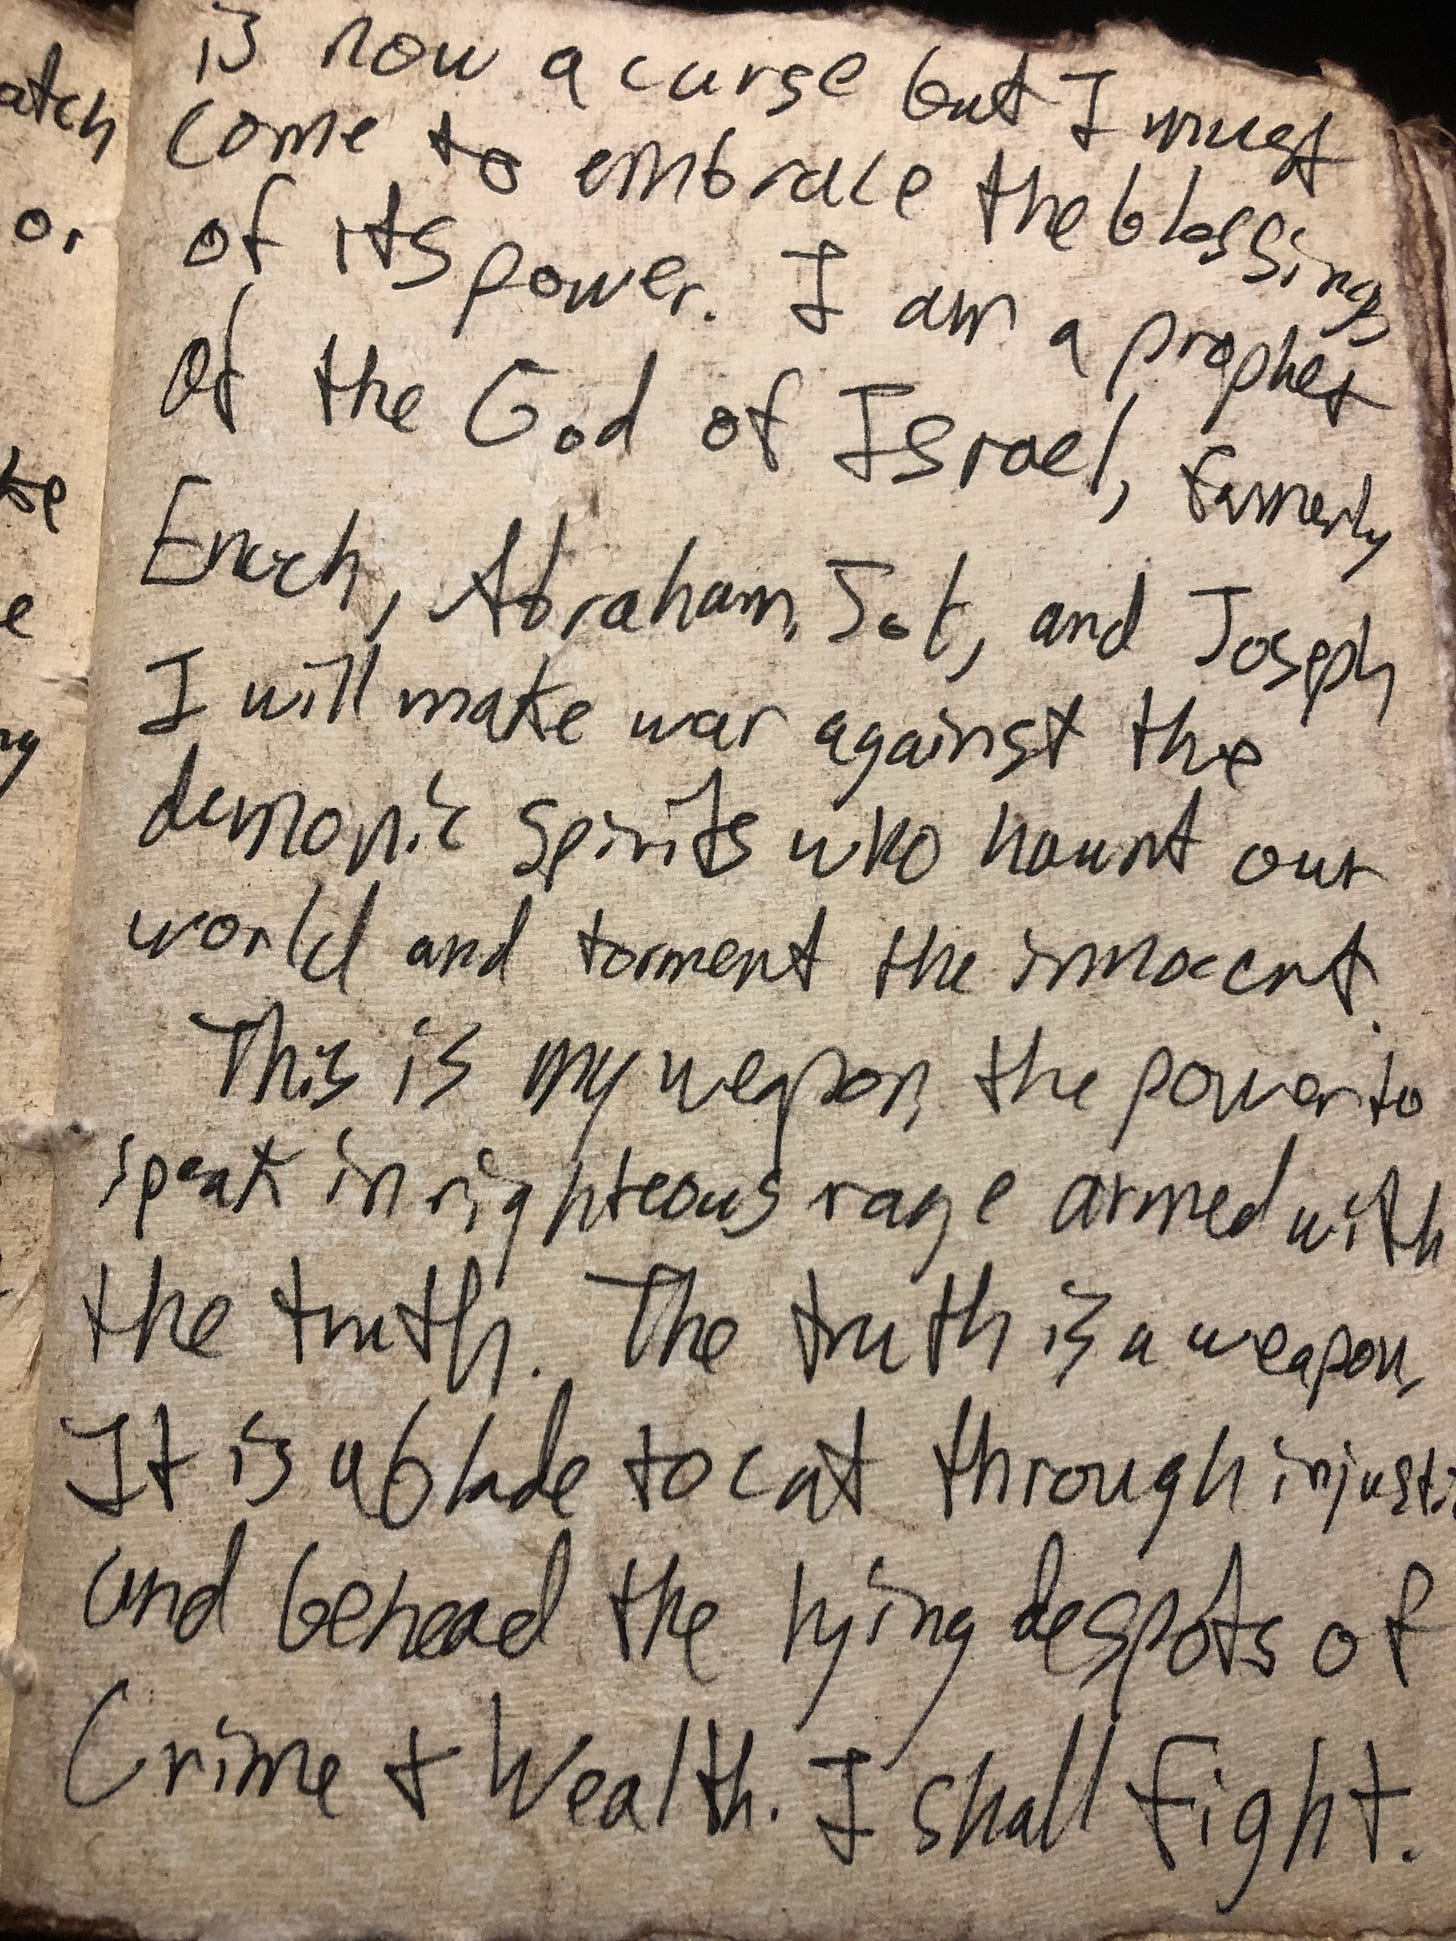 is now a curse but I must
atch come to embrace the blessings
or of its power. I am a prophet
of the God of Israel, formerly
Enoch, Abraham, and Joseph
I will make war against the
demonic spirits who haunt our
world and torment the innocent.
This is my weapon, the power to
speak in righteous rage armed with
the truth. The truth is a weapon,
It is a blade to cut through injusti
and behead the lying despots of
Crime + Wealth. I shall fight.